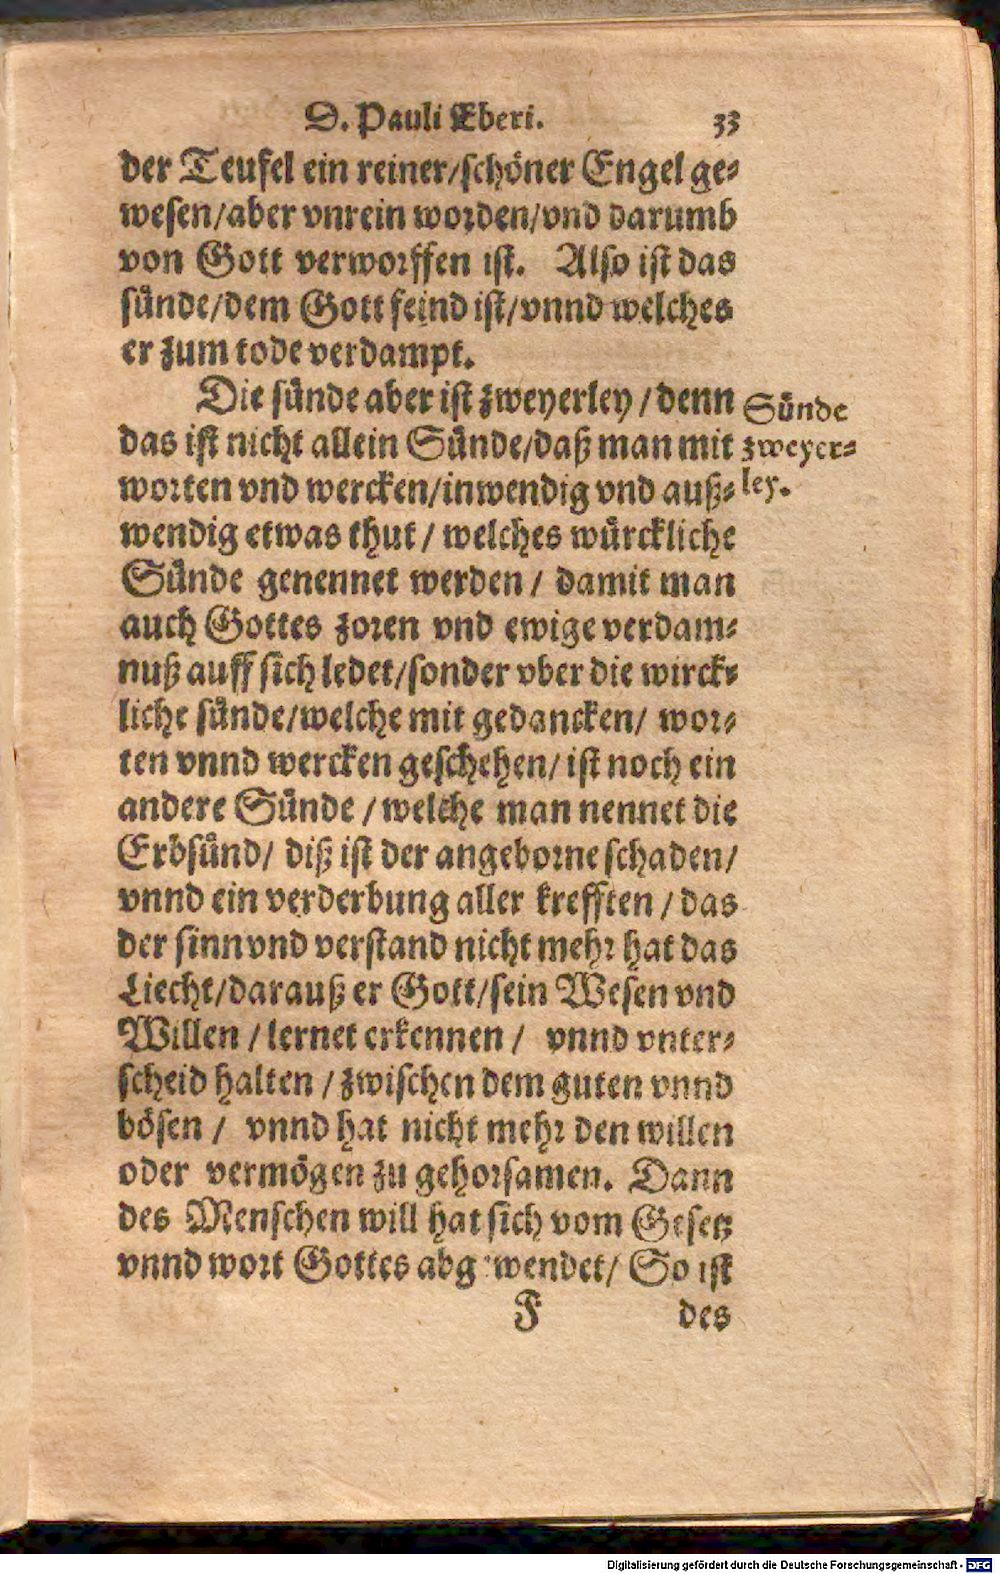 D. Pauli Eberi. 33
der Teufel ein reiner/schöner Engel ge⸗
wesen/aber vnrein worden/vnd darumb
von Gott verworffen ist. Also ist das
sünde/dem Gott feind ist/vnnd welches
er zum tode verdampt.
Die sünde aber ist zweyerley / denn
das ist nicht allein Sünde/daß man mit
worten vnd wercken/inwendig vnd auß⸗
wendig etwas thut / welches würckliche
Sünde genennet werden / damit man
auch Gottes zoren vnd ewige verdam⸗
nuß auff sich ledet/sonder vber die wirck⸗
liche sünde/welche mit gedancken/ wor⸗
ten vnnd wercken geschehen/ ist noch ein
andere Sünde / welche man nennet die
Erbsünd/ diß ist der angeborne schaden/
vnnd ein verderbung aller krefften / das
der sinn vnd verstand nicht mehr hat das
Liecht/darauß er Gott/sein Wesen vnd
Willen / lernet erkennen / vnnd vnter⸗
scheid halten / zwischen dem guten vnnd
bösen / vnnd hat nicht mehr den willen
oder vermögen zu gehorsamen. Dann
des Menschen will hat sich vom Gesetz
vnnd wort Gottes abg wendet/ So ist
F des
Sünde
zweyer⸗
ley.
Digitalisierung gefördert durch die Deutsche Forschungsgemeinschaft - DFG